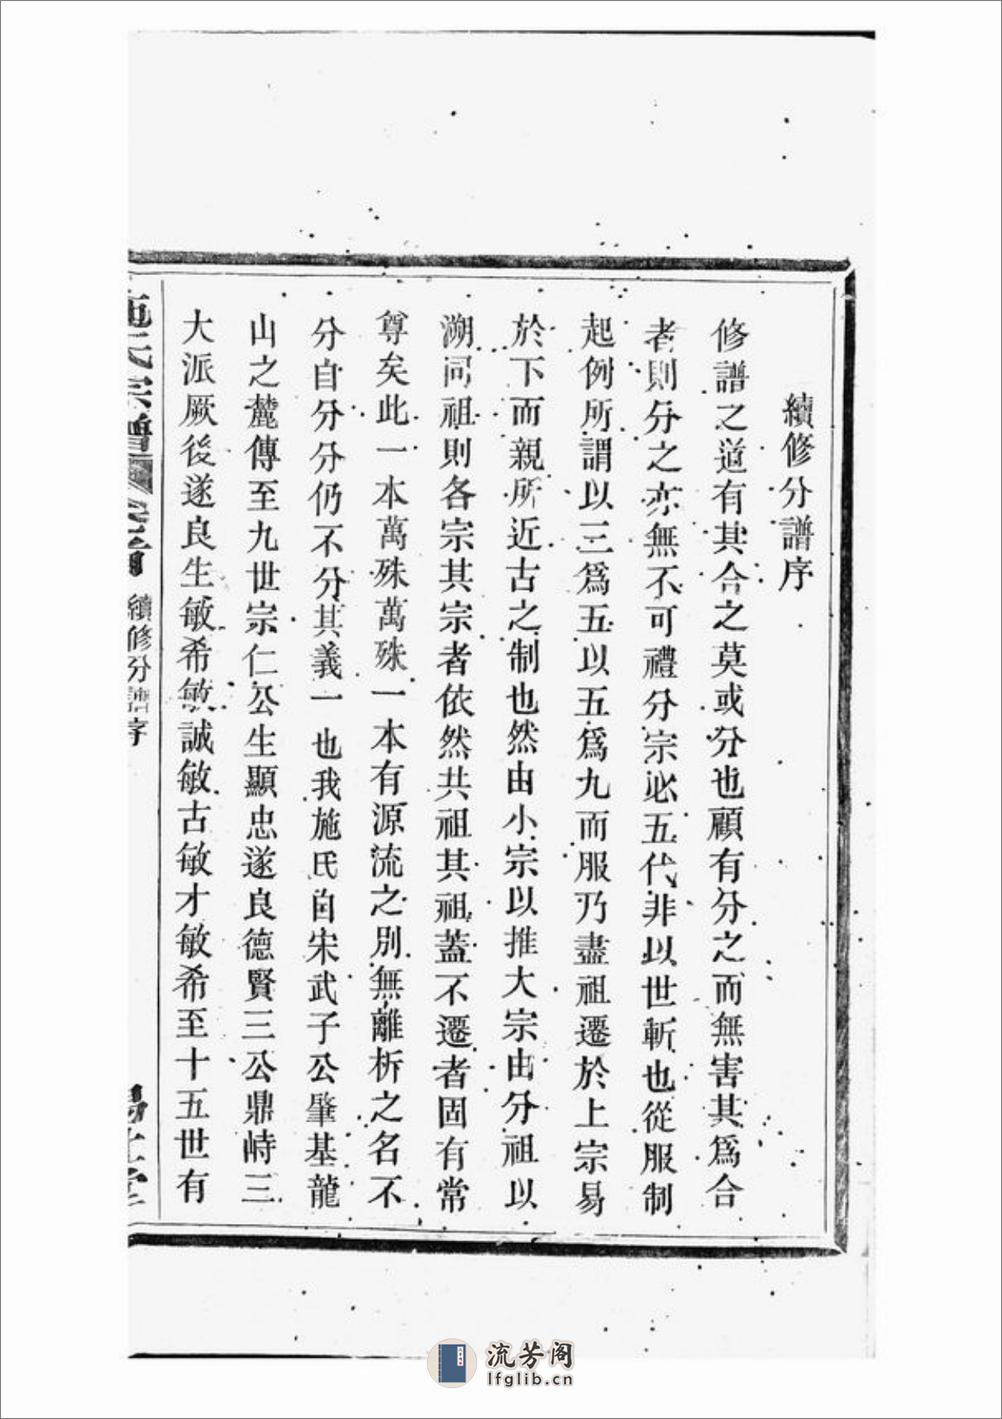 續修分譜序
修譜之道有其合之莫或分也顧有分之而無害其爲合
者則分之亦無不可禮分宗必五代非以世斬也從服制
起例所謂以三爲五以五爲九而服乃盡祖遷於上宗易
於下而親所近古之制也然由小宗以推大宗由分祖以
溯同祖則各宗其宗者依然共祖其祖蓋不遷者固有常
尊矣此一本萬殊萬殊一本有源流之別無離析之名不
分自分分仍不分其義一也我施氏自宋武子公肇基龍
山之麓傳至九世宗仁公生顯忠遂良德賢三公鼎峙三
大派厥後遂良生敏希敏誠敏古敏才敏希至十五世有
施氏宗譜
卷首
續修分譜序
流芳阁
lfglib.cn